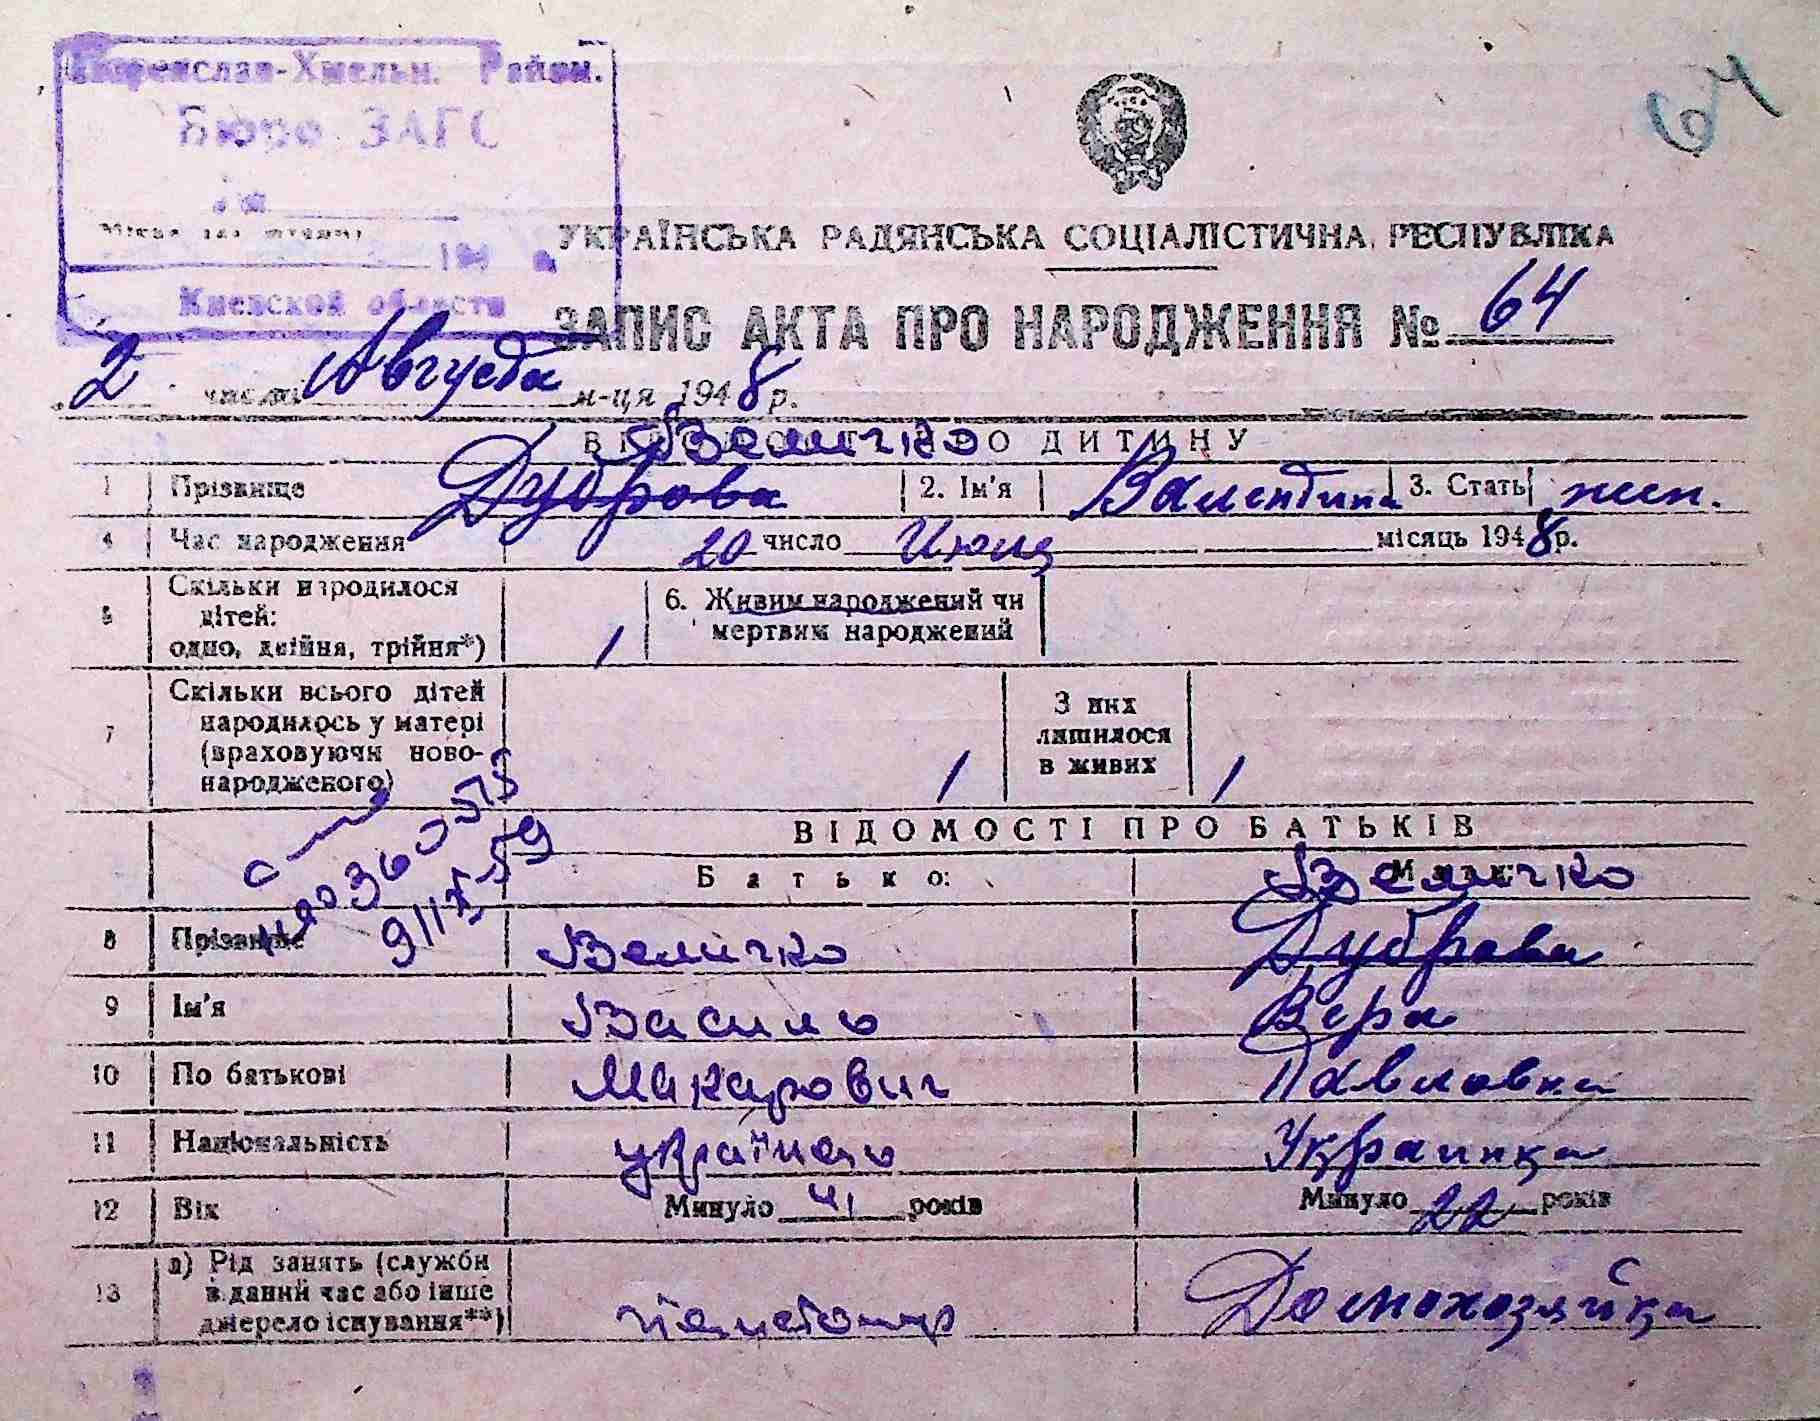 64
Переяслав-Хмельн. Район.
Бюро ЗАГС
194
Киевской области
УКРАЇНСЬКА РАДЯНСЬКА СОЦІАЛІСТИЧНА РЕСПУБЛІКА
ЗАПИС АКТА ПРО НАРОДЖЕННЯ № 64
2 числа Августа м-ця 1948 р.
ДИТИНУ
Величко
1 Прізвище Дуброва 2. Ім'я Валентина 3. Стать жен.
4 Час народження 20 число Июля місяць 1948 р.
Скільки народилося
дітей:
одно, двійня, трійня*)
5 1
6. Живим народжений чи
мертвим народжений
7 Скільки всього дітей
народилось у матері
(враховуючи ново-
народженого)
1
З них
лишилося
в живих
1
ВІДОМОСТІ ПРО БАТЬКІВ
Батько:
Величко
8 Прізвище Величко Дуброва
9 Ім'я Василь Вера
10 По батькові Макарович Павловна
11 Національність українець Украинка
12 Вік Минуло 41 років Минуло 22 років
13 а) Рід занять (служби
в даний час або інше
джерело існування**)
Домохозяйка